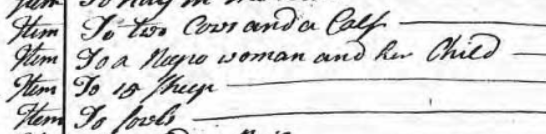 Item To half
Item To two Cows and a Calf
Item To a Negro woman and her Child
Item To 15 Sheep
Item To fowls